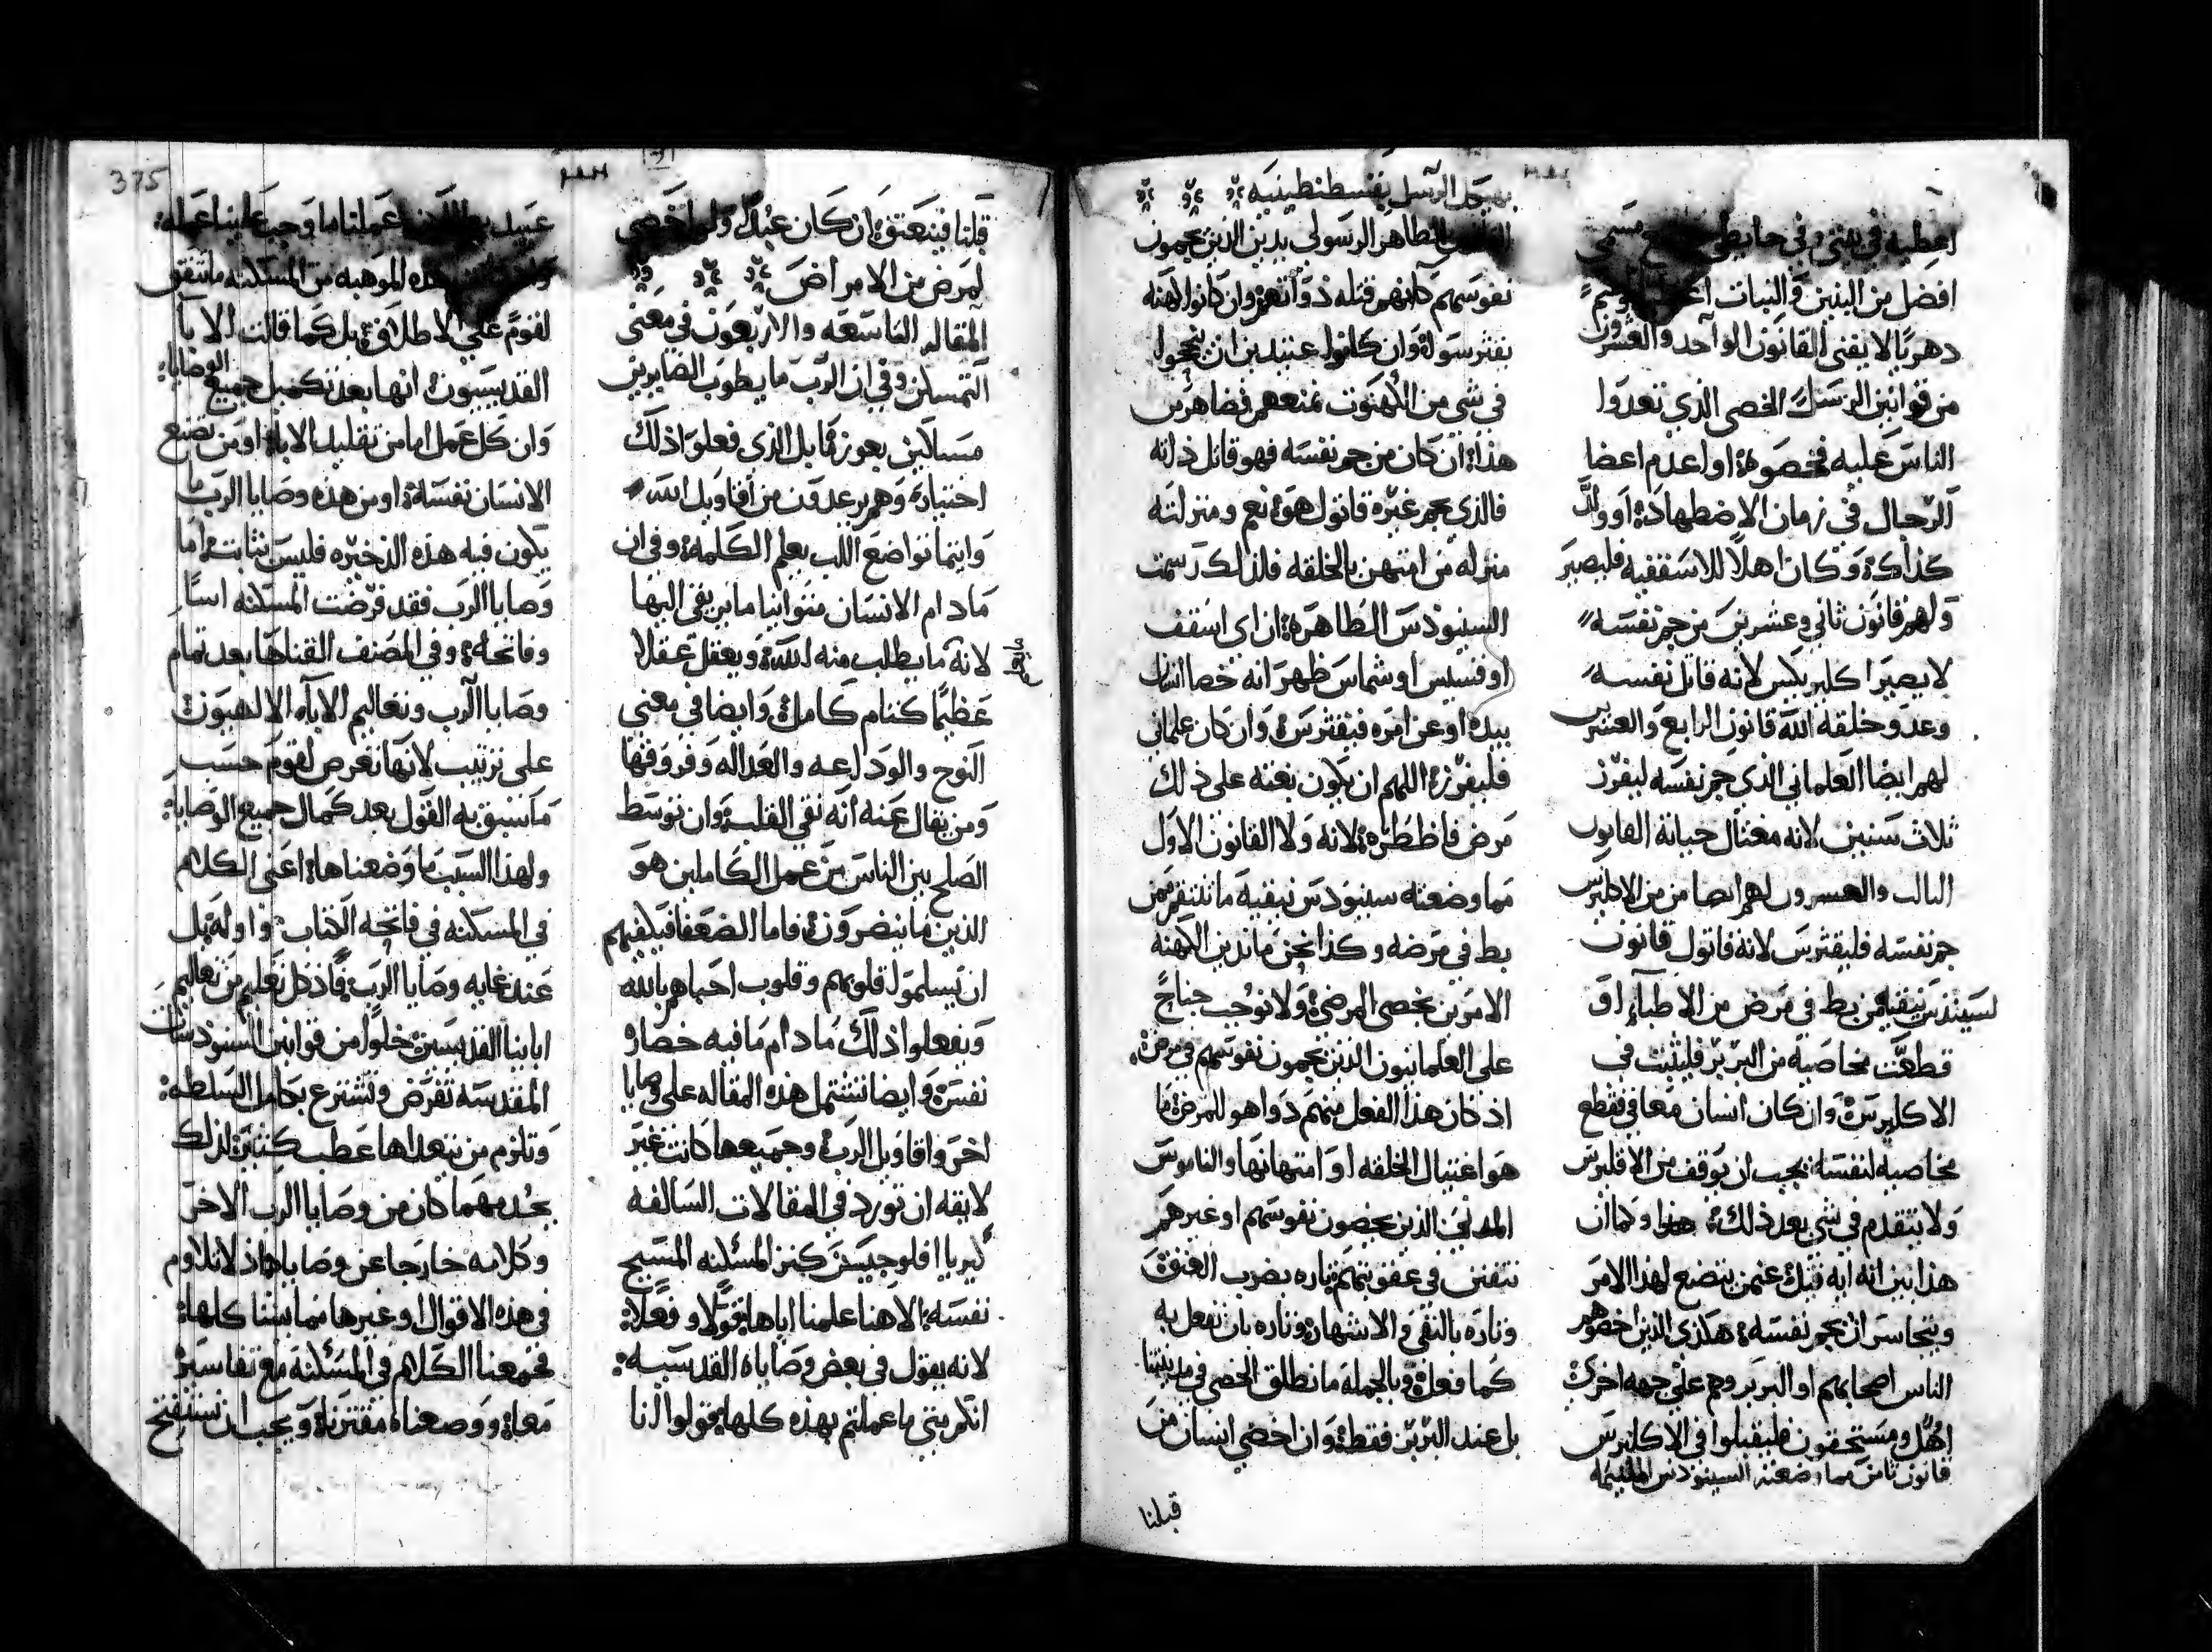 اعطيه في بيتي وفي حايطي مسمى
افضل من البنين والبنات
دهريا لا يفنى القانون الواحد والعشرون
من قوانين الرسل الخصي الذي تعدوا
الناس عليه فخصوه او اعدم اعضا
الرجال في زمان الاضطهاد او ولد
كذاك وكان اهلا للاسقفيه فليصير
ولهم قانون ثاني وعشرين من جم نفسه
لا يصير اكليريكس لانه قاتل نفسه
وعدو خلقة الله قانون الرابع والعشرين
لهم ايضا العلماني الذي جم نفسه ليفرز
ثلاث سنين لانه مغتال حياته القانون
الثالث والعشرون لهم ايضا من من الاكليرس
جم نفسه فليقترس لانه قاتول قانون
لسينودس نيقيه من بط في مرض من الاطباء او
قطعت مخاصيه من البربر فليثبت في
الاكليرس وان كان انسان معافي فقطع
مخاصيه لنفسه يجب ان يوقف من الاقليرس
ولا يتقدم في شي بعد ذلك هذا وكما ان
هذا بين انه ايه قيل عنمن يتصنع لهذا الامر
ويتجاسر ان يجم نفسه هكذي الذين اخصوهم
الناس اصحابهم او البربر وهم على جهه اخرى
اهل ومستحقون فليقبلوا في الاكليرس
قانون ثامن مما وضعته السينودس الملتيمه
بهيكل الرسل بقسطنطينيه
الطاهر الرسولي يدين الذين يجمون
نفوسهم كانهم قتله ذواتهم وان كانوا كهنه
يقترسوا وان كانوا عتيدين ان يتحولوا
في شي من الكهنوت تمنعهم فظاهر من
هذا ان كان من جم نفسه فهو قاتل ذاته
فالذي يجم غيره قاتول هو نعم ومنزلته
منزله من امتهن بالخلقه فلذلك رسمت
السينودس الطاهره ان اي اسقف
او قسيس او شماس ظهر انه خصا انسان
بيده او عن امره فيقترس وان كان علماني
فليفرز اللهم ان يكون بغته على ذلك
مرض فاضطره لانه ولا القانون الاول
مما وضعته سينودس نيقيه ما تنتقم ممن
بط في مرضه وكذا نحن ما ندين الكهنه
الامرين بخصي المرضى ولا نوجب جناح
على العلمانيون الذين يجمون نفوسهم في مرض
اذ كان هذا الفعل منهم دوا هو للمرض لا
هو اغتيال الخلقه او امتهانها والناموس
المدني الذين يخصون نفوسهم او غيرهم
تتفنن في عقوبتهم تاره بضرب العنق
وتاره بالنفي والاشتهار وتاره بان تفعل به
كما فعل وبالجمله ما نطلق الخصي في مدينتنا
بل عند البربر فقط وان اخصي انسان من
قبلنا
375
قبلنا فيتعتق ان كان عبدا ولو اخصي
لمرض من الامراض
المقاله التاسعه والاربعون في معنى
التمسكن وفي ان الرب ما يطوب الضايرين
مساكين بعوز ما بل الذي فعلوا ذلك
اختياره وهم يرعدون من اقاويل الله
وايتما تواضع اللب بعلم الكلمه وفي ان
مادام الانسان متوانيا ما يرتقي اليها
لانه ما يطلب منه لله ويعقل عقلا
عظيما كتنام كامل وايضا في معنى
النوح والوداعه والعداله وفروقها
ومن يقال عنه انه نقي القلب وان توسط
الصلح بين الناس من عمل الكاملين هو
الذين ما ينضرون فاما الضعفا فيكفيهم
ان يسلموا قلوبهم وقلوب احباهم بالله
ويفعلوا ذلك مادام ما فيه خصاره
نفس وايضا تشتمل هذه المقاله على وصايا
اخر واقاويل الرب وجميعها كانت غير
لايقه ان تورد في المقالات السالفه
كيريا افلوجيسن كنز المسكنه المسيح
نفسه الاهنا علمنا اياها قولا وفعلا
لانه يقول في بعض وصاياه القدسيه
انكم متى ما عملتم بهذه كلها قولوا انا
عبيد بطالين عملنا ما وجب علينا عمله
هذه الموهبه من المسكنه ما تتفق
لقوم على الاطلاق بل كما قالت الابا
القديسيون انها بعد تكميل جميع الوصايا
وان كل عمل اما من تقليد الابا او من تصنع
الانسان نفسه او من هذه وصايا الرب ما
يكون فيه هذه الذخيره فليس بثابت اما
وصايا الرب فقد فرضت المسكنه اساس
وفاتحه وفي المصنف القناها بعد تمام
وصايا الرب وتعاليم الابآ الالهيون
على ترتيب لانها تعرض لقوم حسب
ما سبق به القول بعد كمال جميع الوصايا
ولهذا السبب ما وضعناها اعني الكلام
في المسكنه في فاتحه الكتاب واوله بل
عند غايه وصايا الرب فاذ كل تعليم من تعاليم
اباينا القديسين خلوا من قوانين السنودسات
المقدسه تفرض وتشترع بكامل السلطه
وتلزم من يتعداها عطب كثير لذلك
يجد مهما كان من وصايا الرب الاخر
وكلامه خارجا عن وصاياه اذ لا تلاوم
في هذه الاقوال او غيرها مما بيننا كلها
فجمعنا الكلام في المسكنه مع تفاسير
معا ووضعناه مقترنا ويجب ان نستفتح